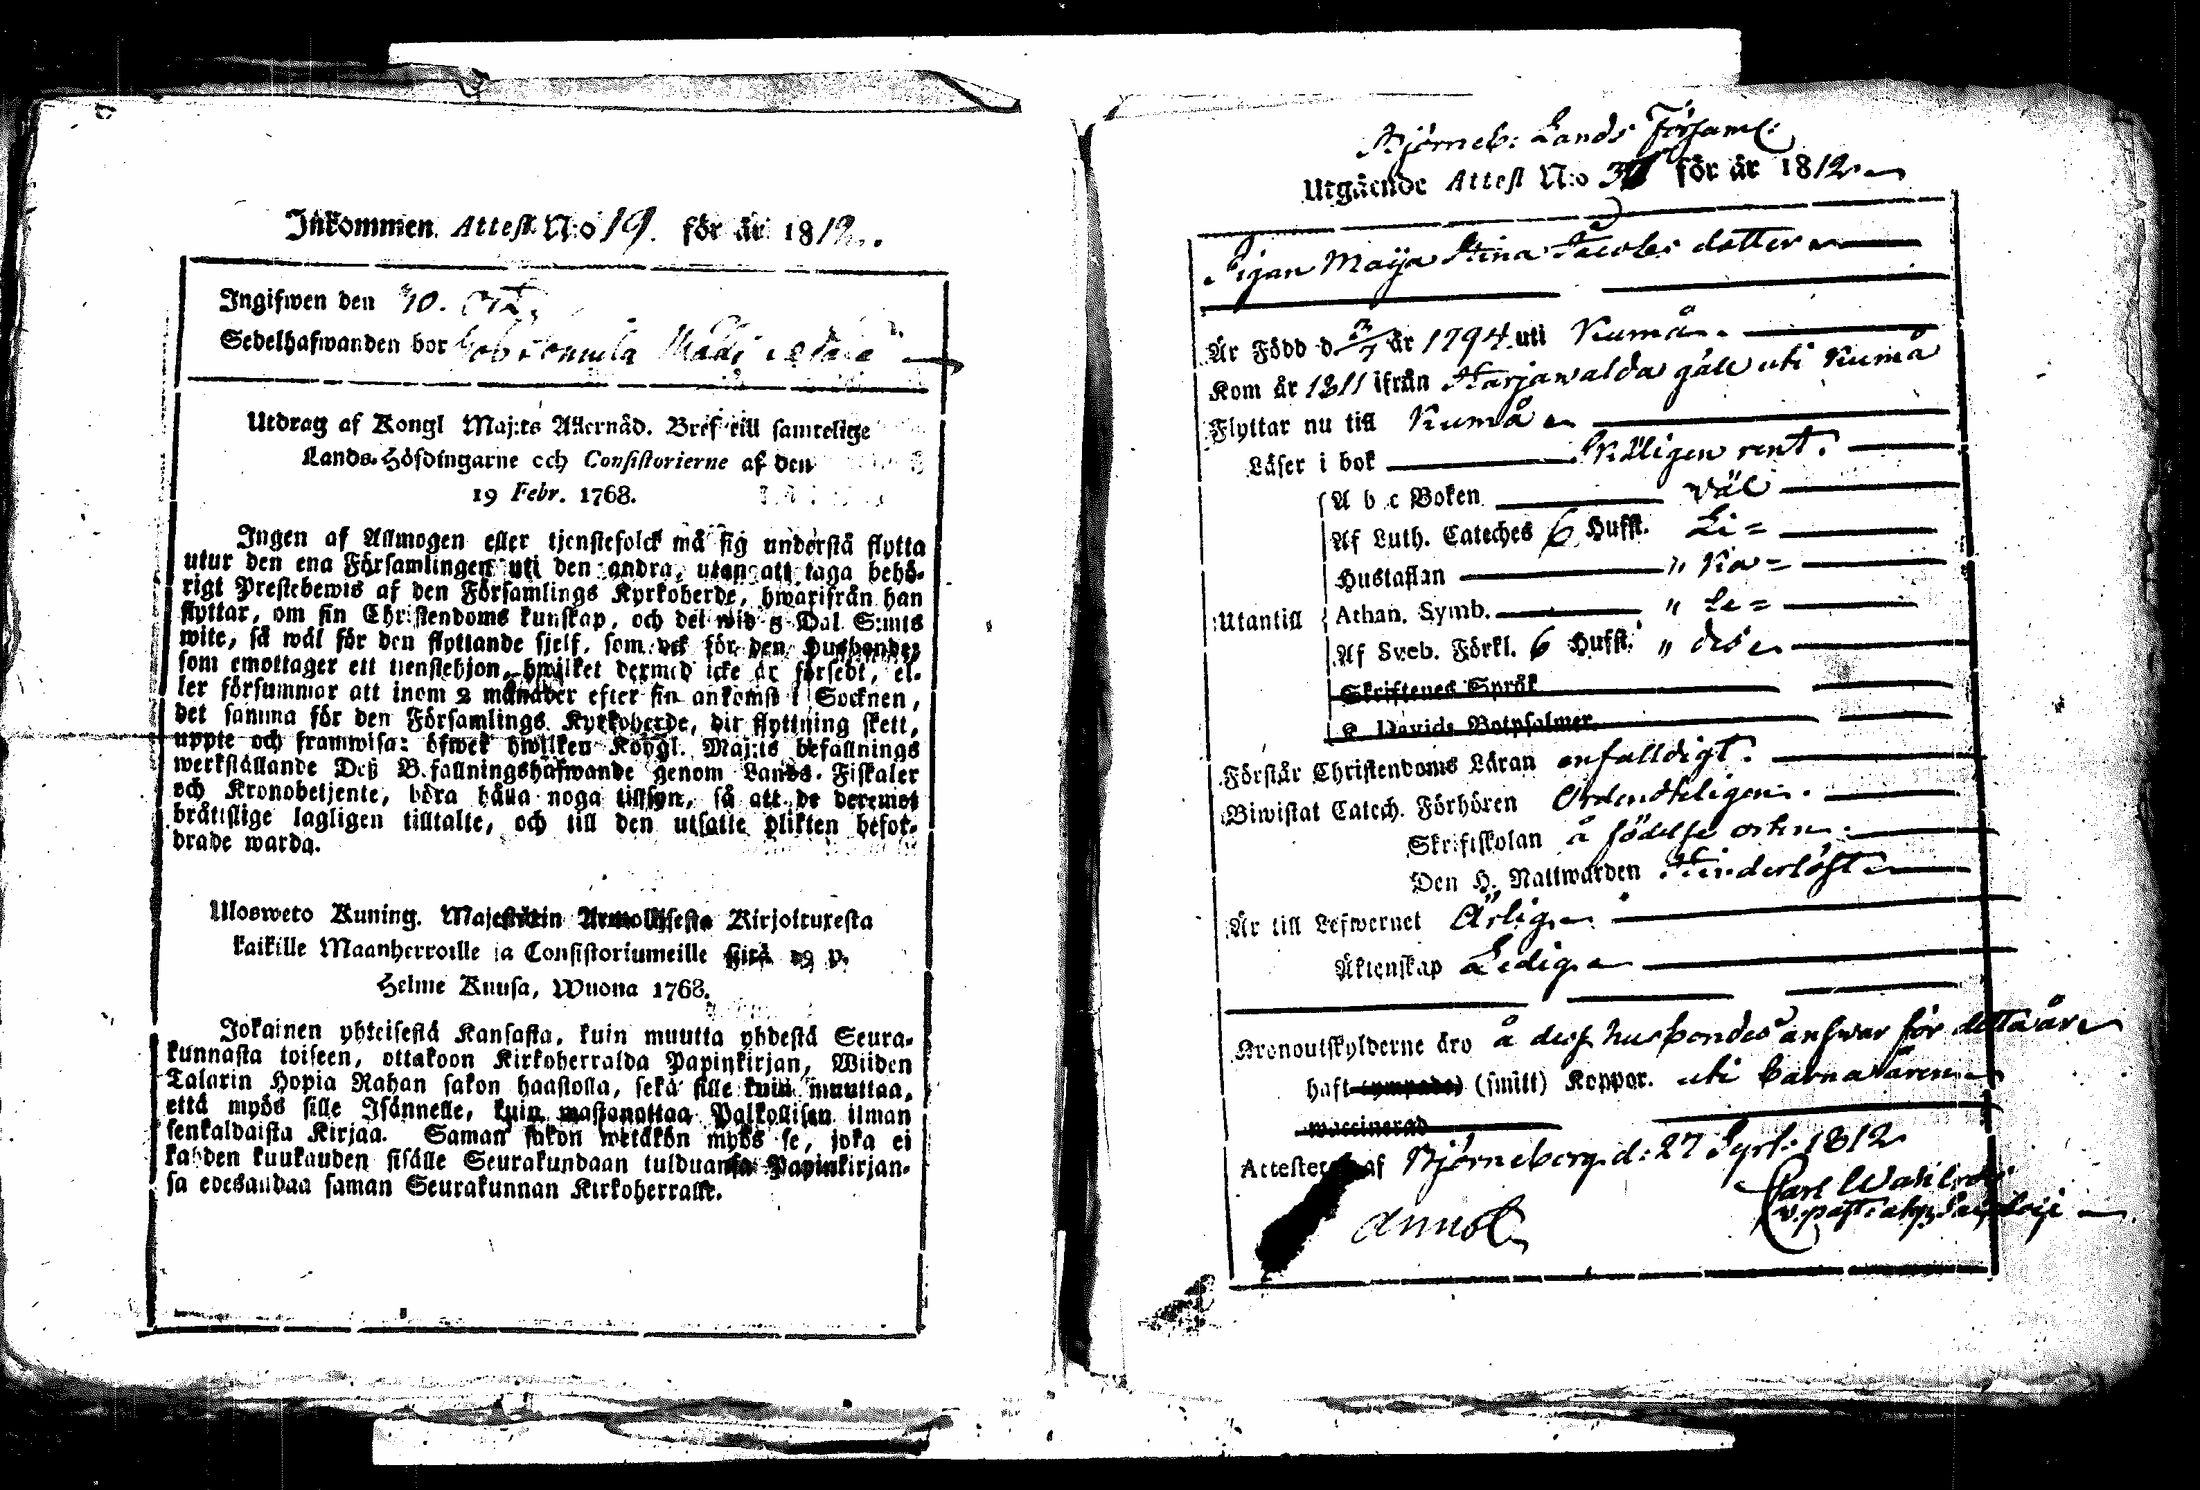 Inkommen Attest N:o 19. för år 1812.
Ingifwen den 10. Oct.
Sedelhafwanden bor
Utdrag af Kongl Maj:ts Allernåd. Bref till samtelige
Lands-Höfdingarne och Consistorierne af den
19 Febr. 1768.
Ingen af Allmogen eller tjenstefolck må sig understå flytta
utur den ena Församlingen uti den andra, utan att taga behö-
rigt Prestebewis af den Församlings Kyrkoherde, hwarifrån han
flyttar, om sin Christendoms kunskap, och det wid 5 Dal. S:mts
wite, så wäl för den flyttande sjelf, som ock för den Husbonde,
som emottager ett tienstehjon, hwilket dermed icke är försedt, el-
ler försummar att inom 2 månader efter sin ankomst i Socknen,
det samma för den Församlings Kyrkoherde, dit flyttning skett,
uppte och framwisa: öfwer hwilken Kongl. Maj:ts befallnings
werkställande Deß B.fallningshafwande genom Lands-Fiskaler
och Kronobetjente, böra hålla noga tillsyn, så att de deremot
bråttslige lagligen tilltalte, och till den utsatte plikten befor-
drade warda.
Ulosweto Kuning. Majestetin Armollisesta Kirjoituxesta
kaikille Maanherroille ja Consistoriumeille siitä 19 p.
Helme Kuusa, Wuona 1768.
Jokainen yhteisestä Kansasta, kuin muutta yhdestä Seura-
kunnasta toiseen, ottakoon Kirkoherralda Papinkirjan, Wiiden
Talarin Hopia Rahan sakon haastolla, sekä sille kuin muuttaa,
että myös sille Isännelle, kuin wastanottaa Palkollisen ilman
senkaldaista Kirjaa. Saman sakon wetäkön myös se, joka ei
kahden kuukauden sisälle Seurakundaan tulduansa Papinkirjan-
sa edesandaa saman Seurakunnan Kirkoherralle.
Björneb: Lands Församl:
Utgående Attest N:o för år 1812
Pigan Maija Stina Jacobs dotter
Är Född d 3/7 år 1794 uti Kumå.
Kom år 1811 ifrån Harjawalda gäll uti Kumå
Flyttar nu till Kumå
Läser i bok Skäligen rent.
A b c Boken väl
Af Luth. Cateches 6 Hufst. Li=
Hustaflan " Ka=
Utantill Athan. Symb. " Le=
Af Sveb. Förkl. 6 Hufst. " des
Skriftenes Språk
K. Davids Botpsalmer
Förstår Christendoms Läran enfalldigt.
Biwistat Catech. Förhören Ordentheligen.
Skriftskolan å födelse orten.
Den H. Nattwarden Hinderlöst
Är till Lefwernet Ärlig
Äktenskap Ledig
Kronoutskylderne äro å dess husbondes answar för detta år
haft (ympade) (smitt) Koppor. uti barnaåren
waccinerad
Attesteras af Björneborg d: 27 1812
Carl